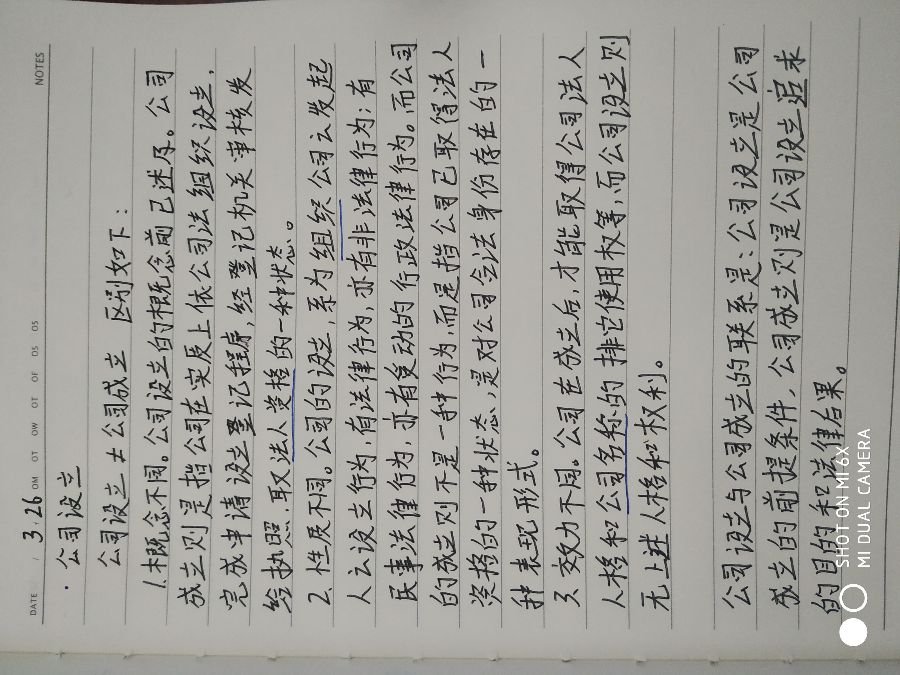 NOTES
DATE / 3 / 26 OM OT OW OT OF OS OS
· 公司设立
公司设立 ≠ 公司成立 区别如下：
1. 概念不同。公司设立的概念前已述及。公司
成立则是指公司在实质上依公司法组织设立，
完成申请设立登记程序，经登记机关审核发
给执照，取法人资格的一种状态。
2. 性质不同。公司的设立，系为组织公司之发起
人之设立行为，有法律行为，亦有非法律行为；有
民事法律行为，亦有受动的行政法律行为。而公司
的成立则不是一种行为，而是指公司已取得法人
资格的一种状态，是对公司合法身份存在的一
种表现形式。
3. 效力不同。公司在成立后，才能取得公司法人
人格和公司名称的排它使用权等，而公司设立则
无上述人格和权利。
公司设立与公司成立的联系是：公司设立是公司
成立的前提条件，公司成立则是公司设立追求
的目的和法律后果。
SHOT ON MI 6X
MI DUAL CAMERA